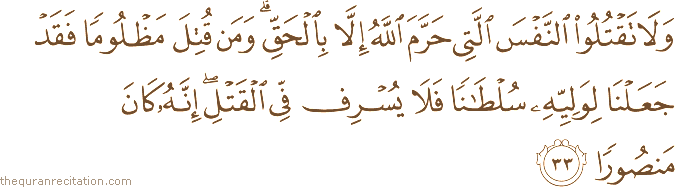 وَلَا تَقْتُلُوا۟ ٱلنَّفْسَ ٱلَّتِى حَرَّمَ ٱللَّهُ إِلَّا بِٱلْحَقِّ ۗ وَمَن قُتِلَ مَظْلُومًا فَقَدْ
جَعَلْنَا لِوَلِيِّهِۦ سُلْطَـٰنًا فَلَا يُسْرِف فِّى ٱلْقَتْلِ ۖ إِنَّهُۥ كَانَ
مَنصُورًا ٣٣
thequranrecitation.com